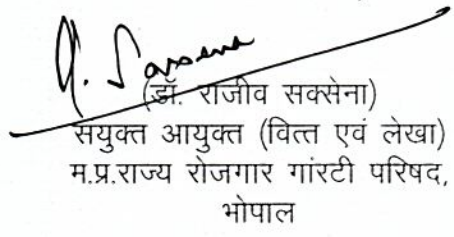 R. Saxena
(डॉ. राजीव सक्सेना)
सयुक्त आयुक्त (वित्त एवं लेखा)
म.प्र.राज्य रोजगार गांरटी परिषद,
भोपाल